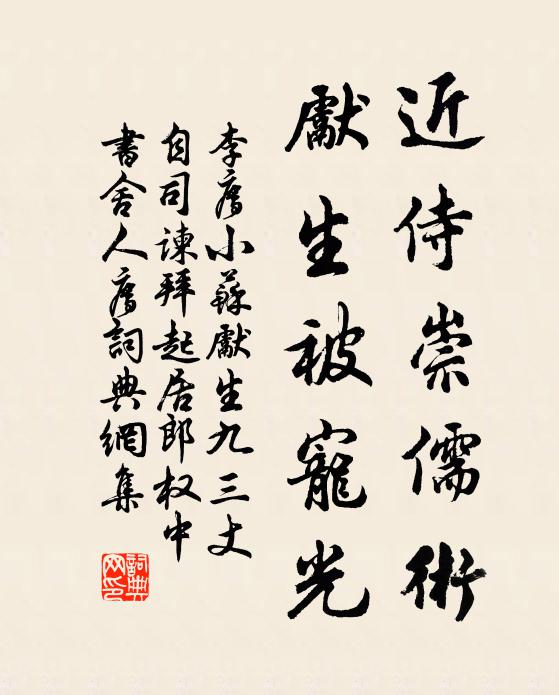 近侍崇儒術
獻生被寵光
李廌小蘇獻生九三丈
自司諫拜起居郎权中
書舍人廌詞典網集
詞典
网印